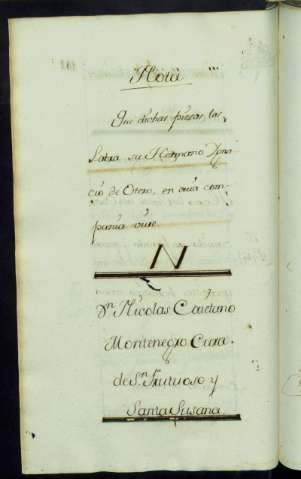 Nota
Que dichas piesas, las
Labra su Hermano Ygna
cio de Otero, en cuia com
pania viue.
N
Dn. Nicolas Caietano
Montenegro Cura
de Sn. Frutuoso y
Santa Susana.